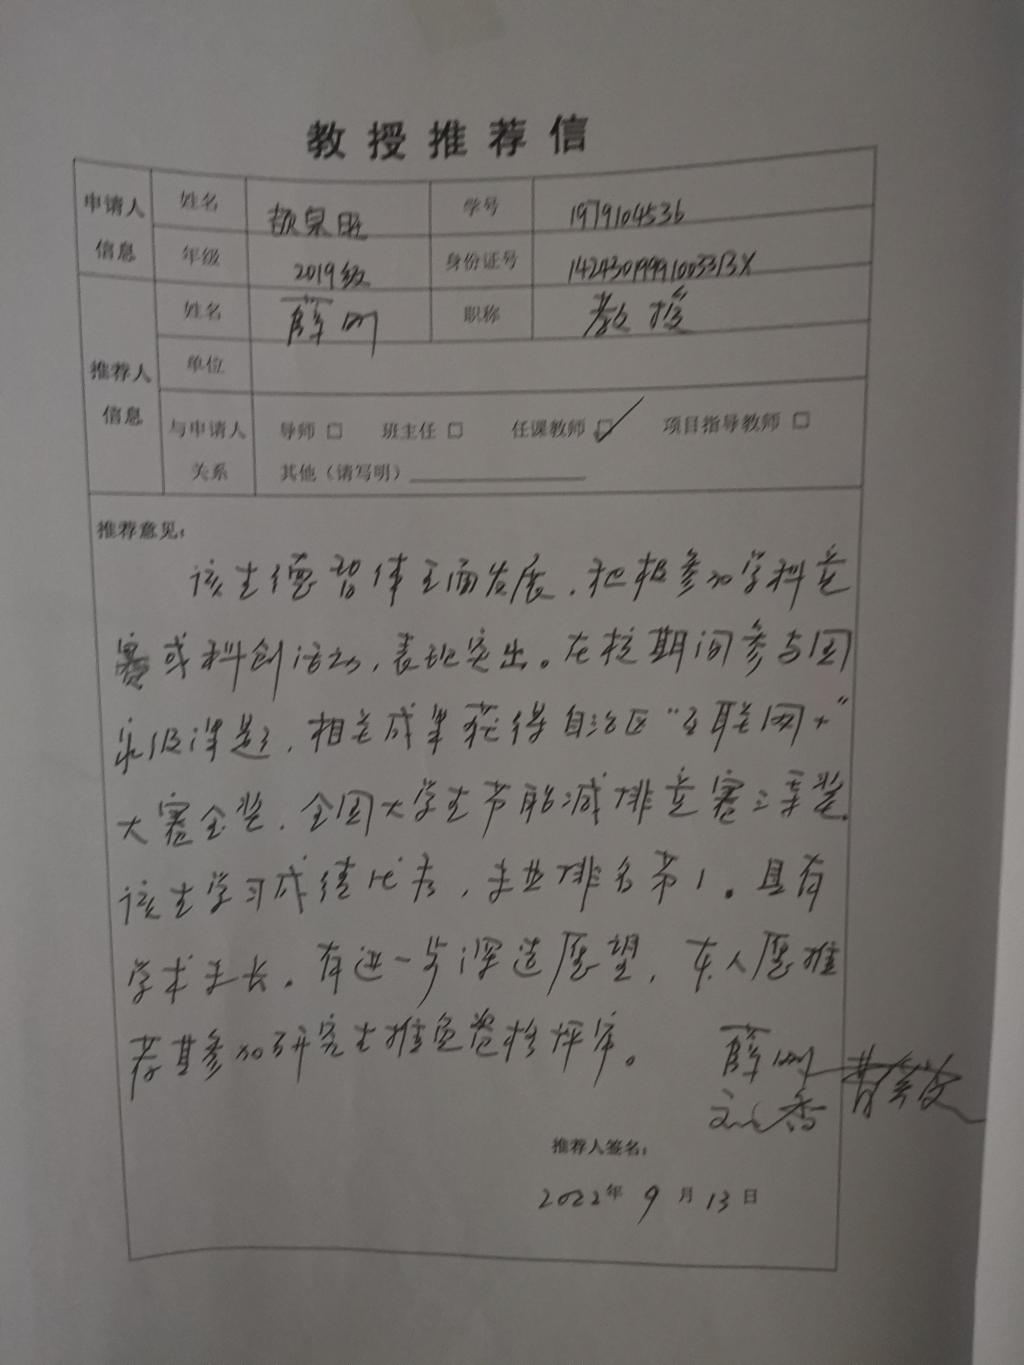 教授推荐信
申请人信息
姓名
学号 1979104536
年级 2019级
身份证号
推荐人信息
姓名 薛刚
职称 教授
单位
与申请人关系
导师 □ 班主任 □ 任课教师 ☑ 项目指导教师 □
其他（请写明）
推荐意见：
该生德智体全面发展，积极参加学科竞
赛或科创活动，表现突出。在校期间参与国
家级课题，相关成果获得自治区“互联网+”
大赛金奖，全国大学生节能减排竞赛三等奖。
该生学习成绩优秀，专业排名第1。具有
学术专长，有进一步深造愿望，本人愿推
荐其参加研究生推免资格评审。
薛刚
推荐人签名：
2022年 9月 13日